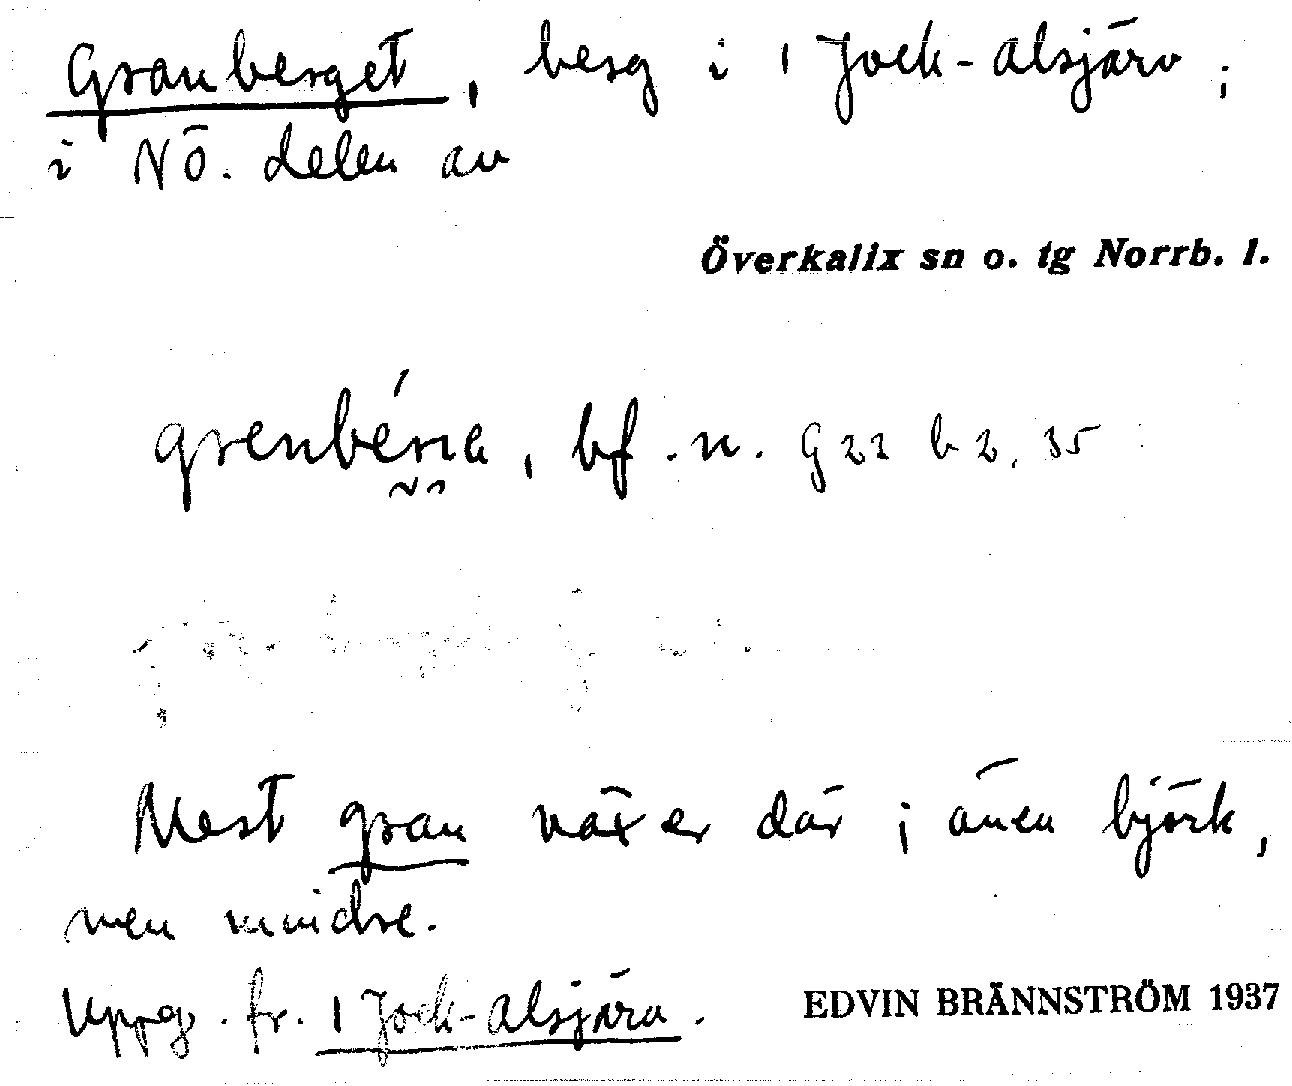 Granberget, berg i 1 Jock-alsjärv;
i NÖ. delen av
Överkalix sn o. tg Norrb. l.
bf. n. G22 b2, 35
Mest gran växer där; även björk,
men mindre.
Uppg. fr. 1 Jock-alsjärv.
EDVIN BRÄNNSTRÖM 1937